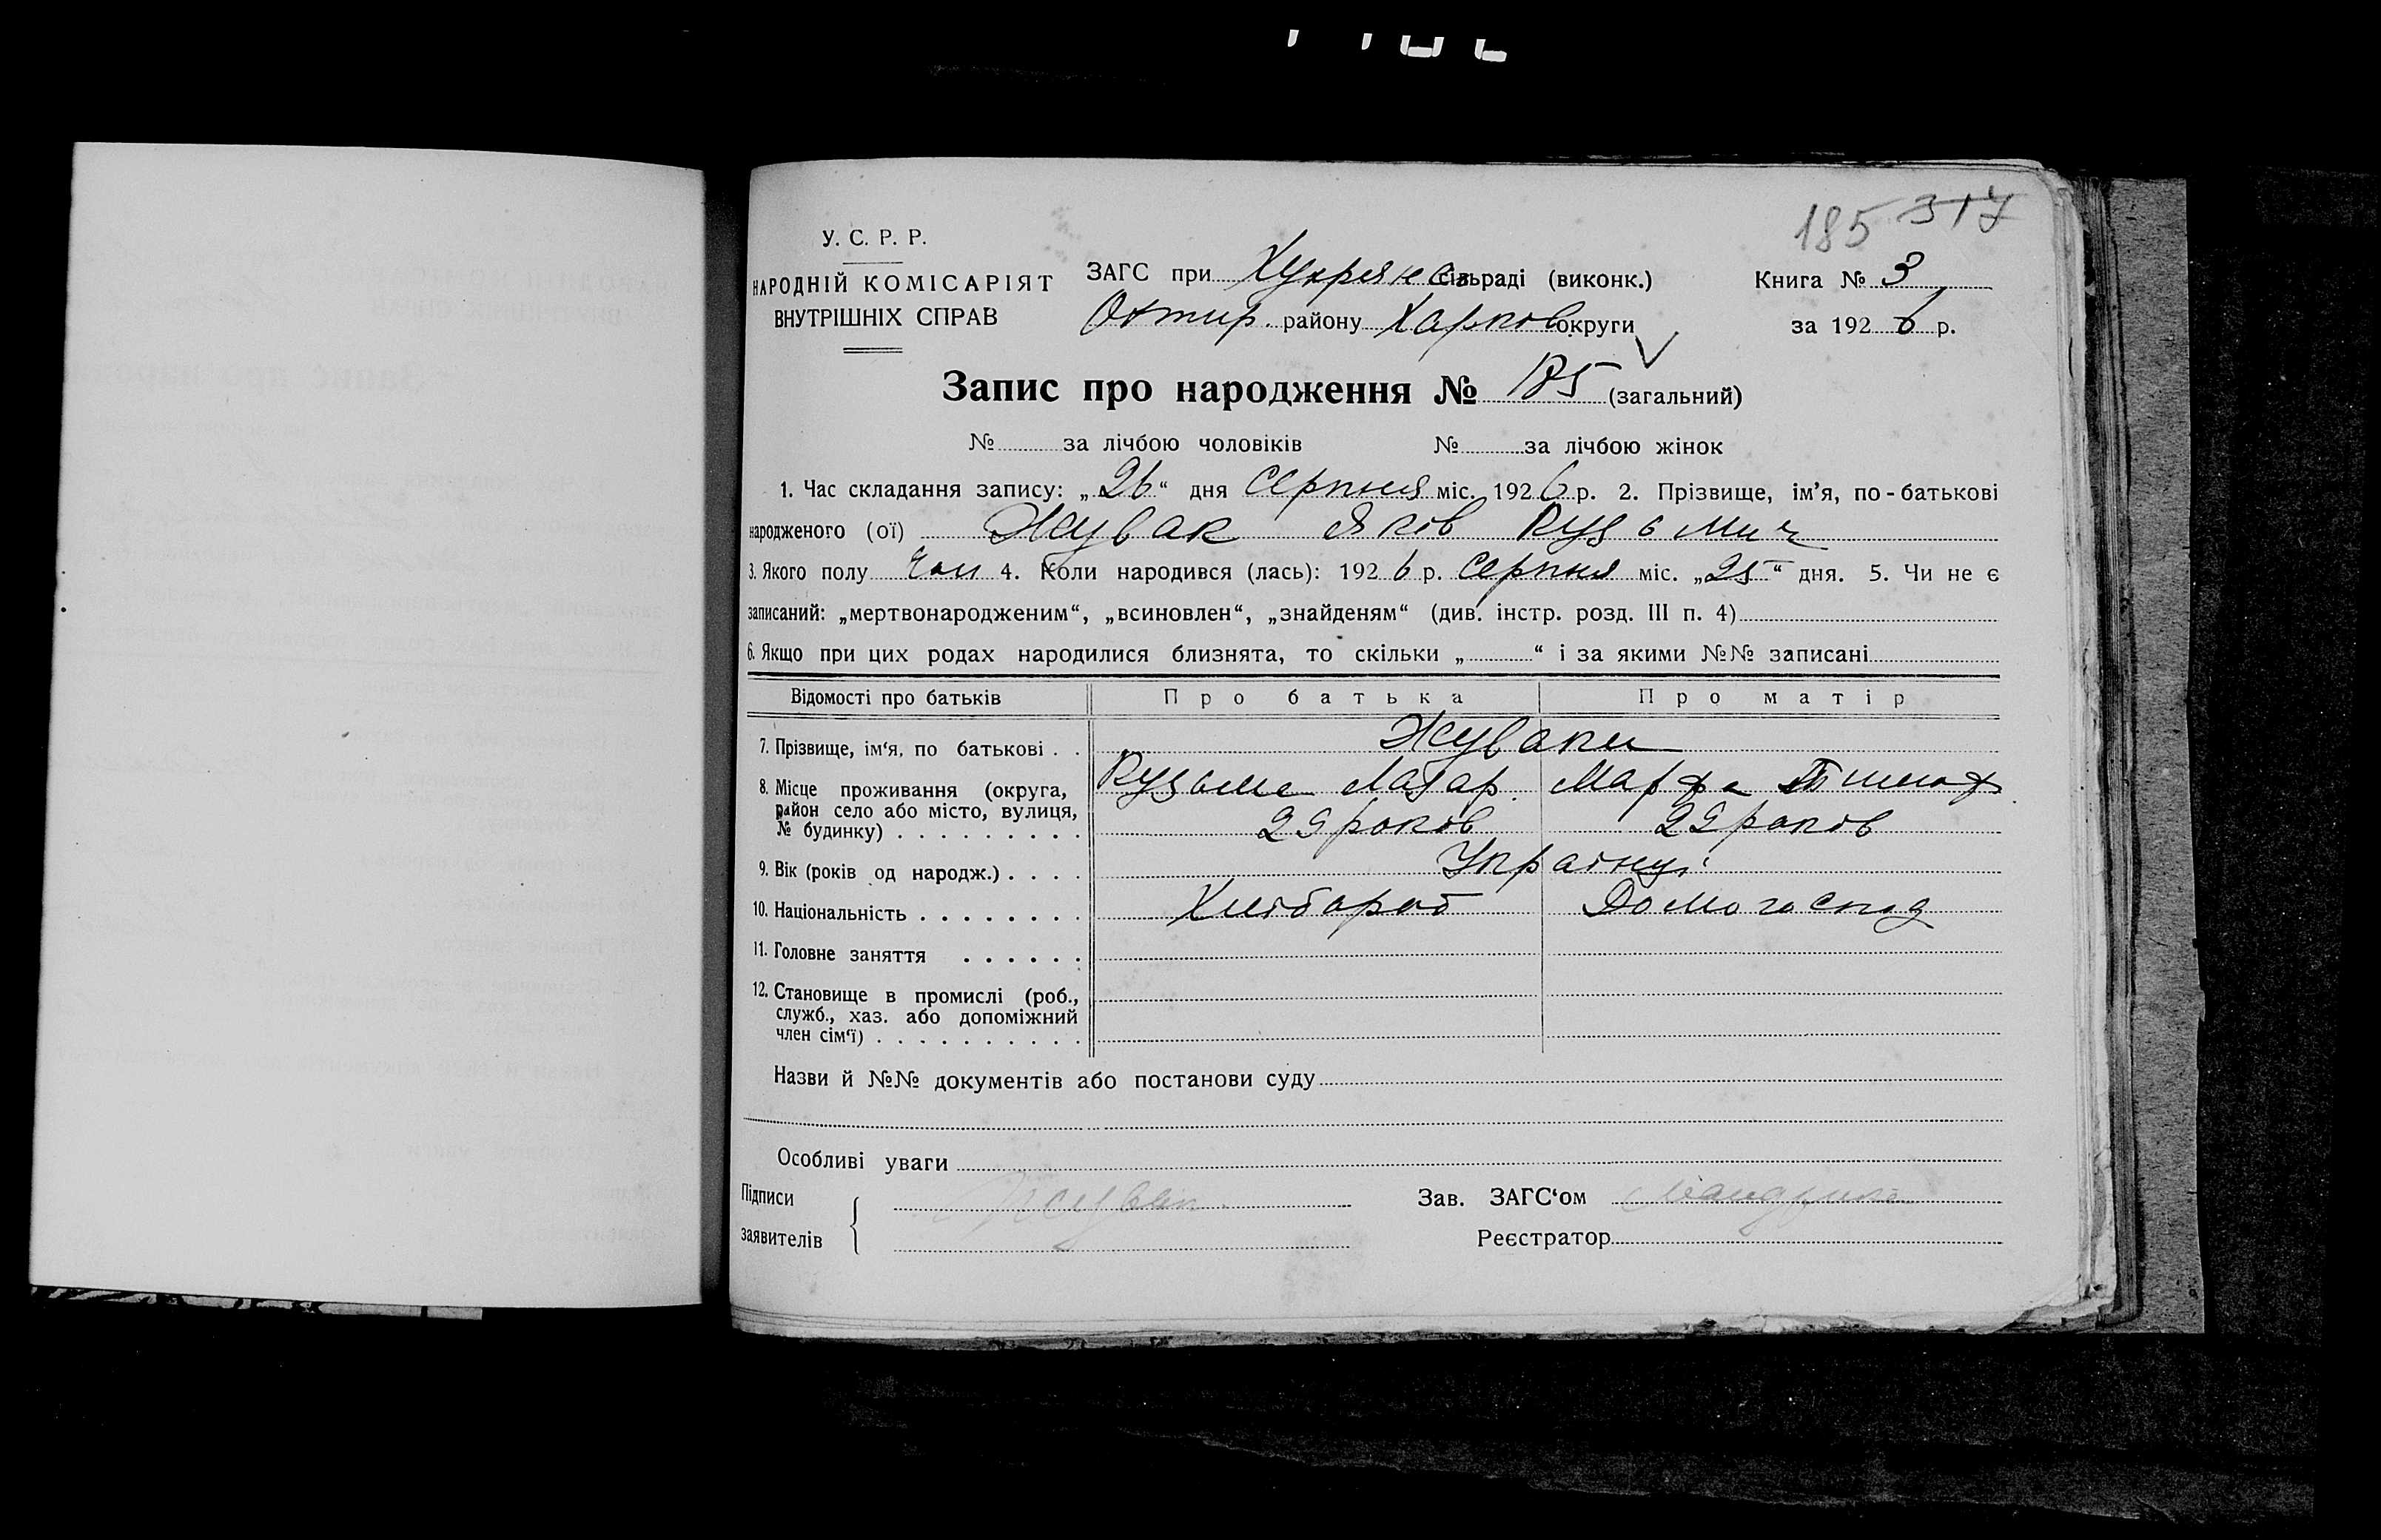 185 317
У. С. Р. Р.
НАРОДНІЙ КОМІСАРІЯТ
ВНУТРІШНІХ СПРАВ
ЗАГС при Хухрянс сільраді (виконк.)
Охтир. району Харков округи
Книга № 3
за 1926 р.
Запис про народження № 185 (загальний)
№ за лічбою чоловіків № за лічбою жінок
1. Час складання запису: „26“ дня Серпня міс. 1926 р. 2. Прізвище, ім’я, по-батькові
народженого (ої) Жувак Яків Кузьмич
3. Якого полу Чол 4. Коли народився (лась): 1926 р. Серпня міс. „25“ дня. 5. Чи не є
записаний: „мертвонародженим“, „всиновлен“, „знайденям“ (див. інстр. розд. III п. 4)
6. Якщо при цих родах народилися близнята, то скільки „ “ і за якими №№ записані
Відомості про батьків Про батька Про матір
7. Прізвище, ім‘я, по батькові . . Жуваки
8. Місце проживання (округа, район село або місто, вулиця, № будинку) Кузьма Лазар. Марфа
29 років 29 років
9. Вік (років од народж.) . . . . Українці
10. Національність . . . . . . . . Хлібороб Домогоспод
11. Головне заняття . . . . . .
12. Становище в промислі (роб.,
служб., хаз. або допоміжний
член сім‘ї) . . . . . . . . . .
Назви й №№ документів або постанови суду
Особливі уваги
Підписи
заявителів
Жувак
Зав. ЗАГС‘ом
Реєстратор